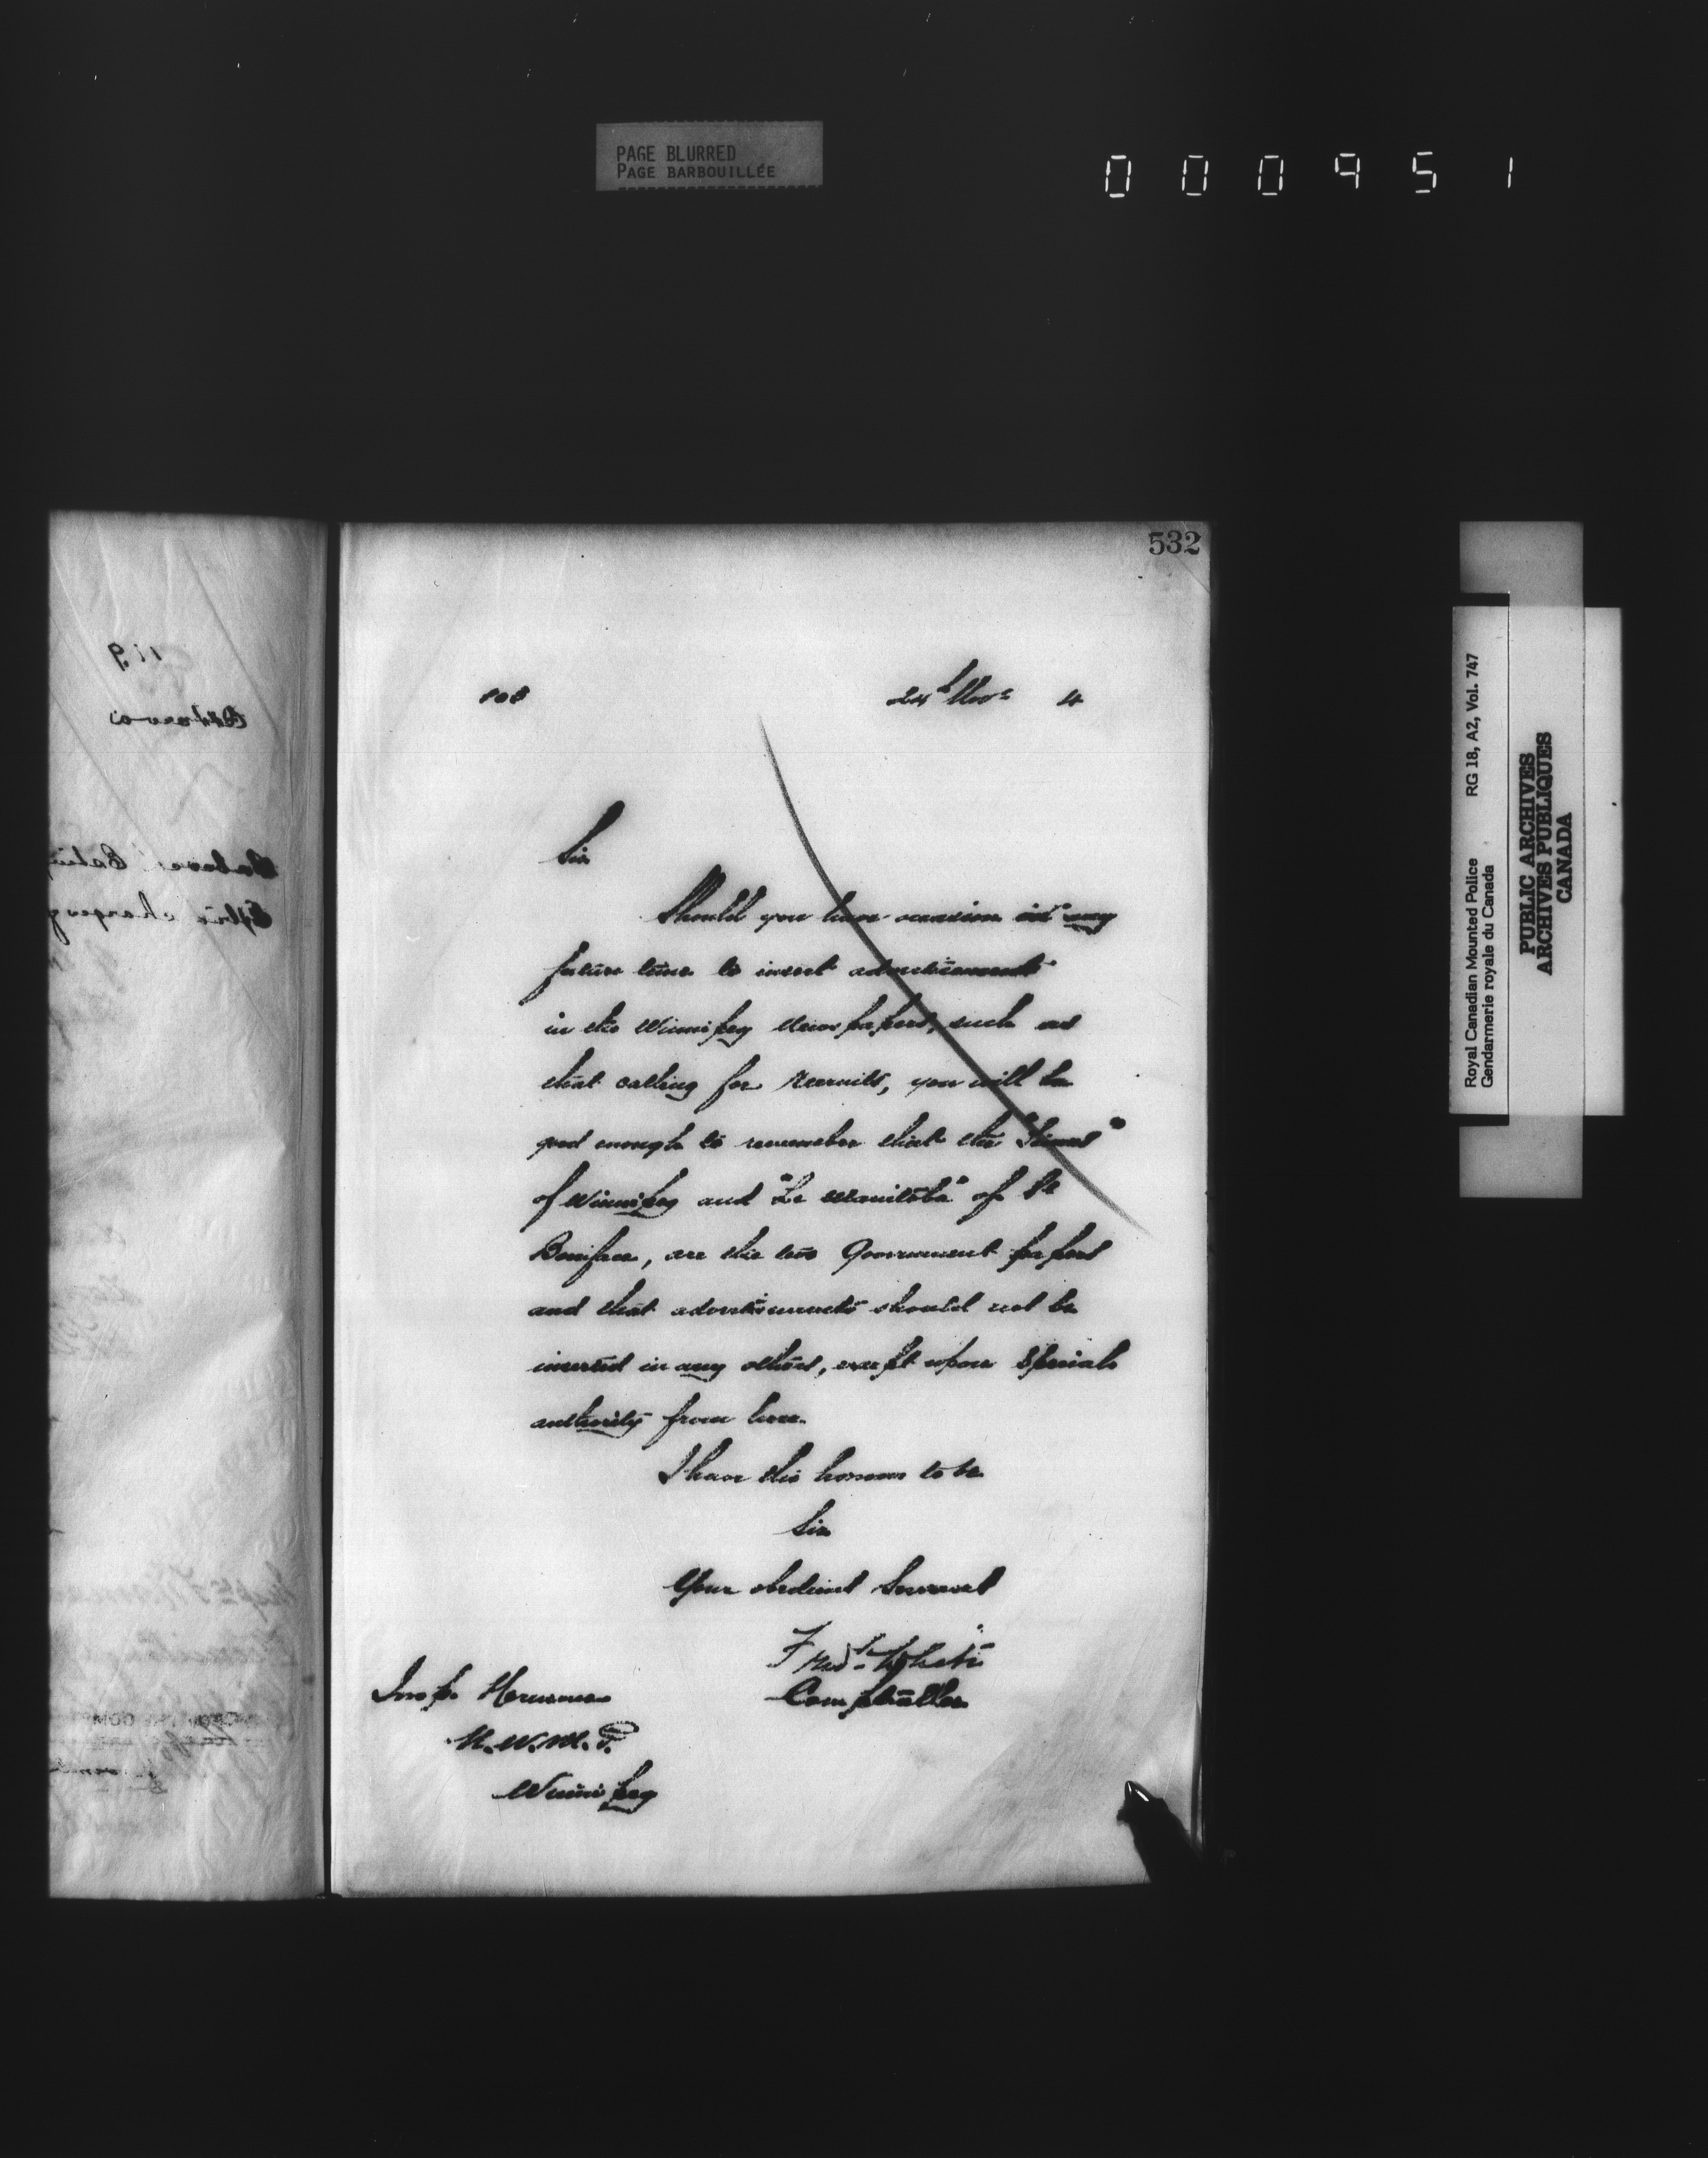 PAGE BLURRED
PAGE BARBOUILLÉE
000951
532
108
24th Novr 4
Sir
Should you have occasion at any
future time to insert advertisements
in the Winnipeg Newspapers, such as
that calling for Recruits, you will be
good enough to remember that the "Times"
of Winnipeg and "Le Manitoba" of St
Boniface, are the two Government papers
and that advertisements should not be
inserted in any others, except upon Special
authority from here.
I have the honour to be
Sir
Your obedient Servant
Fred White
Comptroller
Insp.
N.W.M.P.
Winnipeg
Royal Canadian Mounted Police RG 18, A2, Vol. 747
Gendarmerie royale du Canada
PUBLIC ARCHIVES
ARCHIVES PUBLIQUES
CANADA